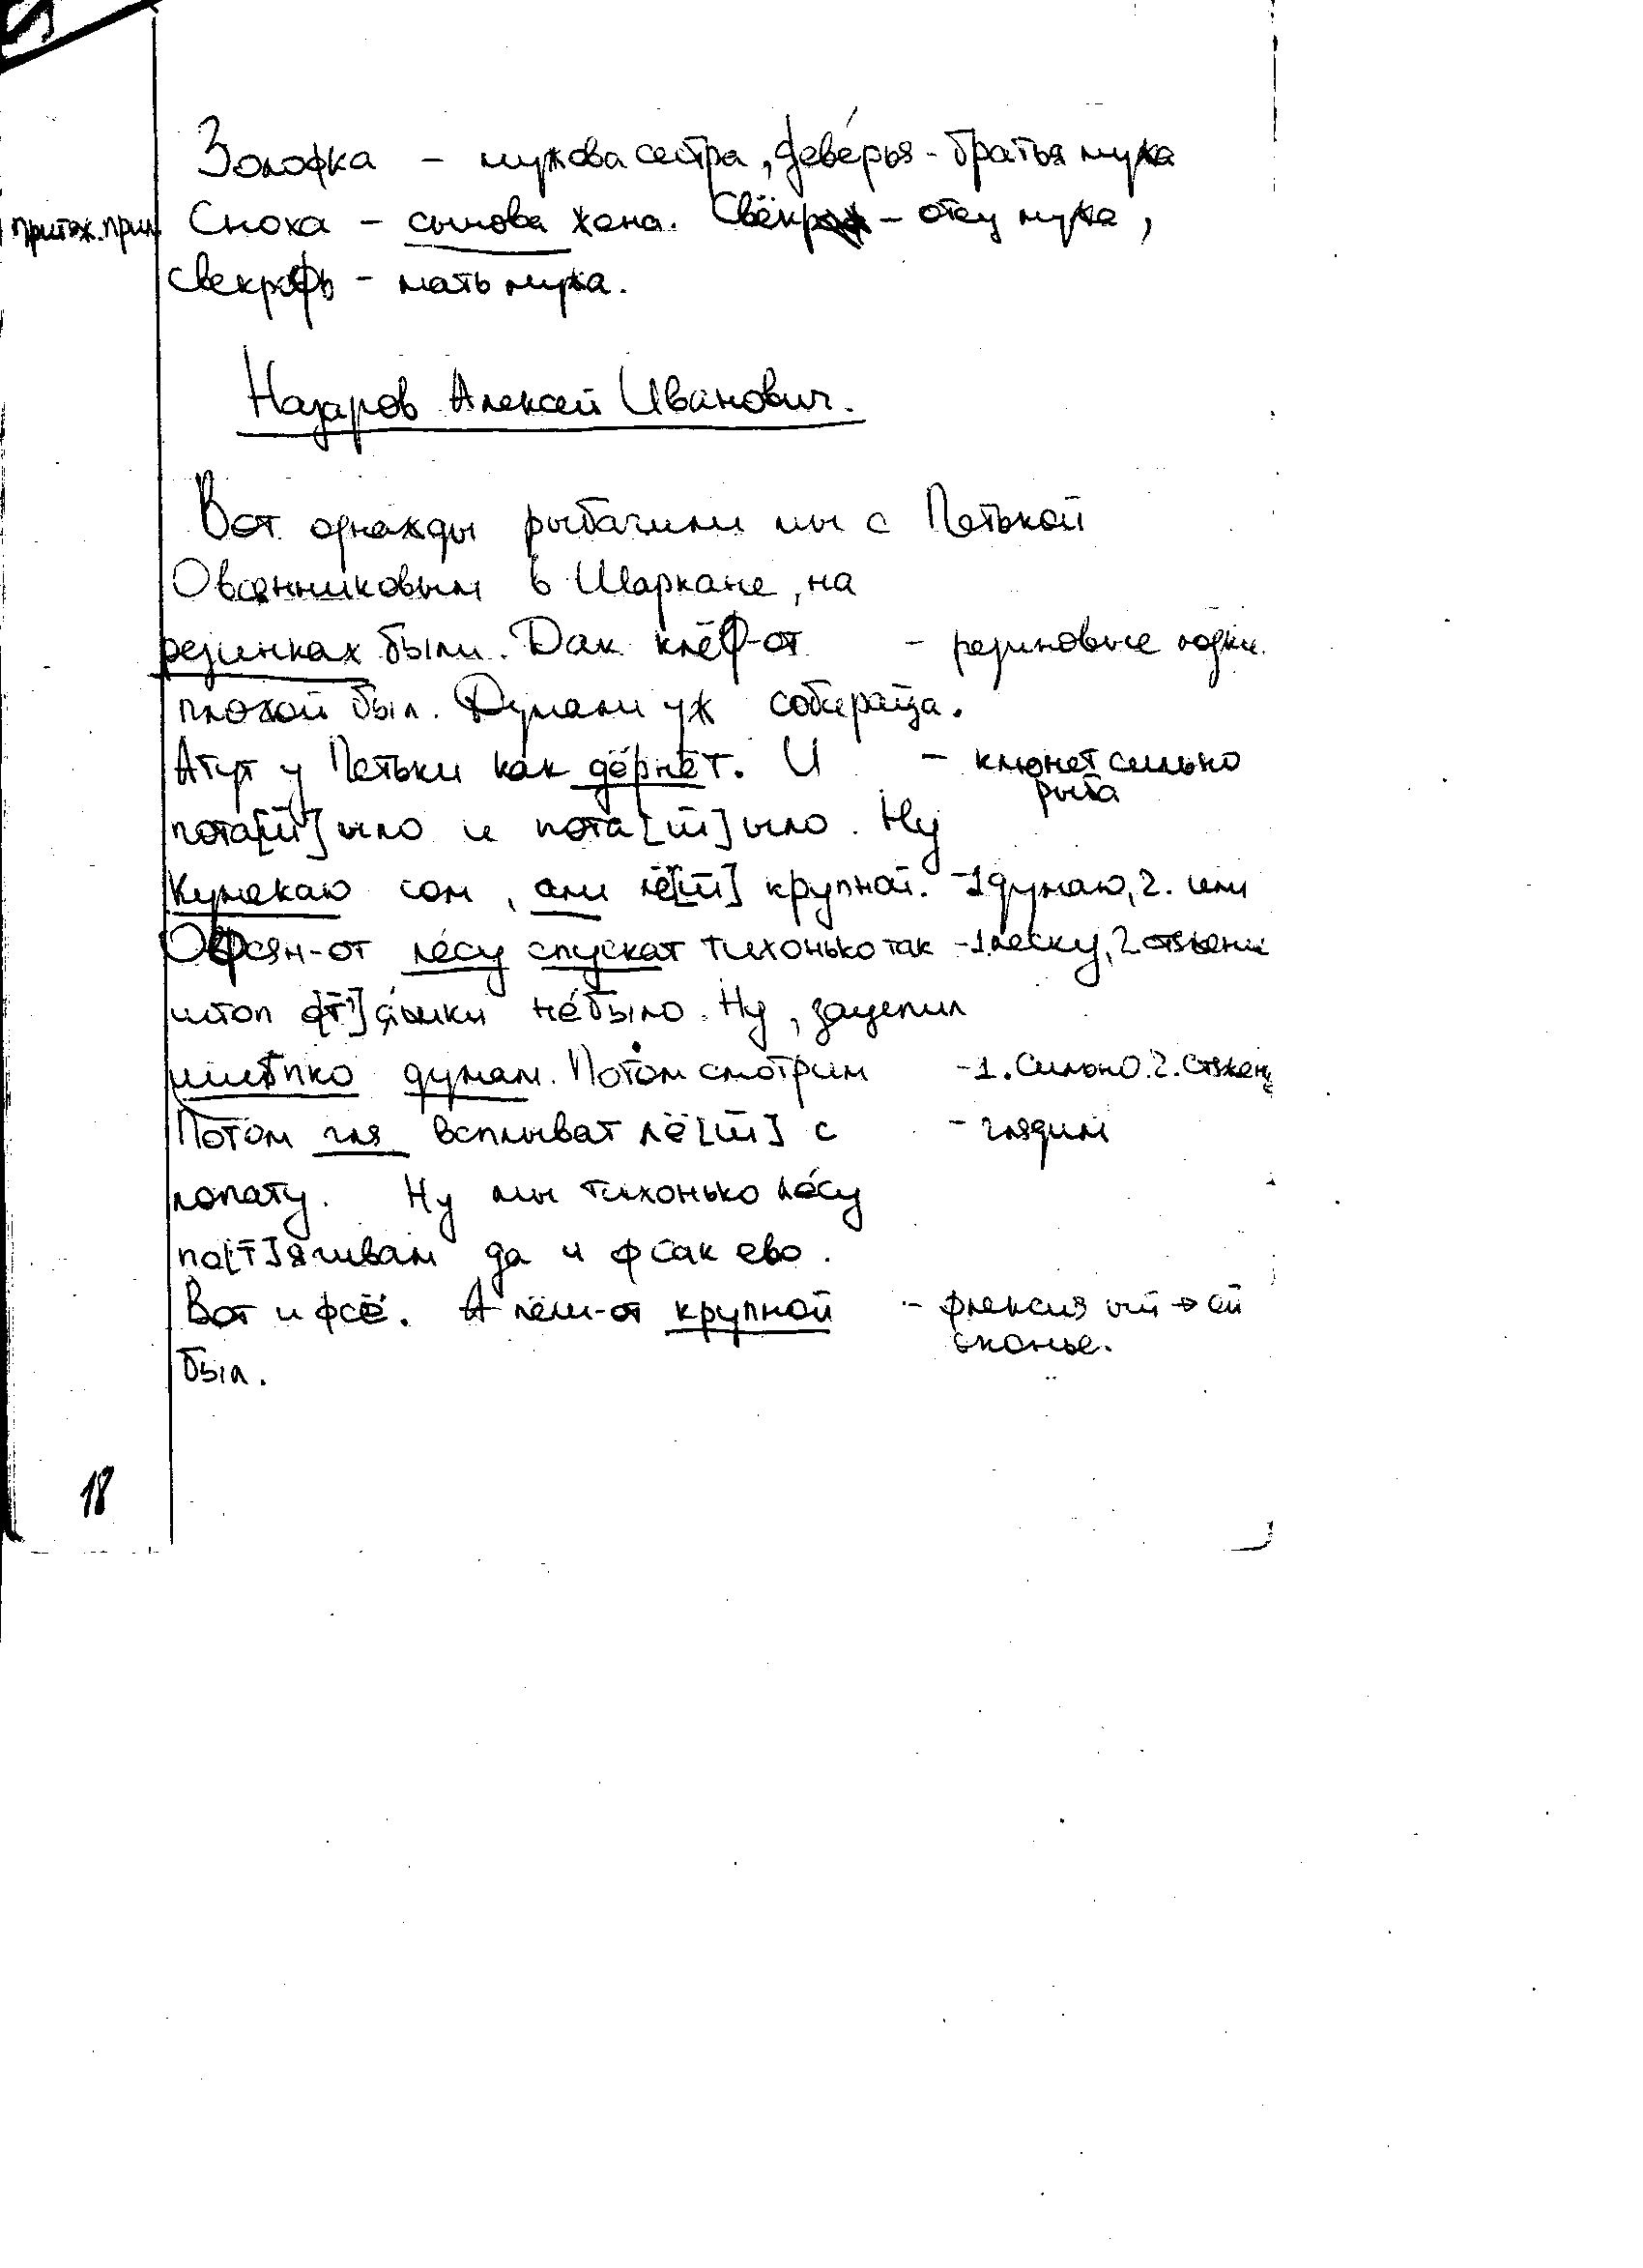 Золофка – мужова сестра, деве́рья – братья мужа
притяж. прил. Сноха – сынова жена. Свёкр – отец мужа,
свекрофь – мать мужа.
Назаров Алексей Иванович.
Вот однажды рыбачили мы с Петькой
Овсянниковым в Шаркане, на
резинках были. Дак клёф-от – резиновые лодки.
плохой был. Думали уж собираца.
А тут у Петьки как дёрнет. И – клюнет сильно рыба
пота[ш̅]ыло и пота[ш̅]ыло. Ну
Кумекаю сом, али лё[ш̅] крупной. – 1 думаю, 2. или
Офсян-от лесу спускат тихонько так – 1. леску, 2 стяжение
штоп о[т̅]яшки не́было. Ну, зацепил
шипко думам. Потом смотрим – 1. сильно. 2. стяжен
Потом гля всплыват лё[ш̅] с – глядим
лопату. Ну мы тихонько ле́су
по[т̅]ягивам да и фсак ево.
Вот и фсё. А лёш-от крупной – флексия ый → ой
оканье.
был.
18